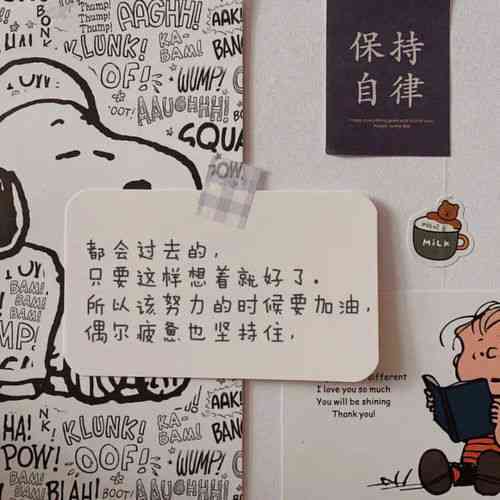 AAGHH!
AAK!
Thump!
Thump!
Thump!
KLUNK!
OOF!
KA-
BAM!
BANG
WUMP!
AAUGHHH!
OOT!
AAK!
SQUA
POW!
保持
自律
MILK
都会过去的，
只要这样想着就好了。
所以该努力的时候要加油，
偶尔疲惫也坚持住，
BAM!
BAM!
BAM!
different
I love you so much
You will be shining
Thank you!
HA!
POW!
BAM!
BAM!
BLAH!
KLUNK!
OOF!
KA-
BAM!
WUMP!
AAUGHHH!
BOOT!
AAK!